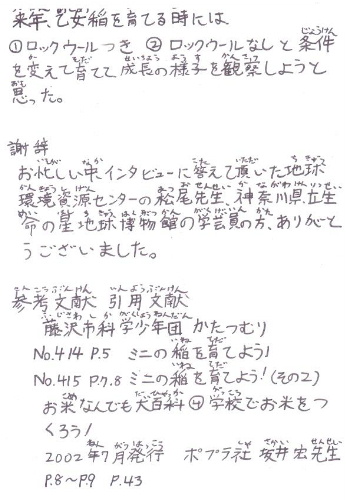 来年、乙女稲を育てる時には
①ロックウールつき ②ロックウールなしと条件
を変えて育てて成長の様子を観察しようと
思った。
謝辞
お忙しい中インタビューに答えて頂いた地球
環境資源センターの松尾先生、神奈川県立生
命の星地球博物館の学芸員の方、ありがと
うございました。
参考文献 引用文献
藤沢市科学少年団 かたつむり
No.414 P.5 ミニの稲を育てよう!
No.415 P.7.8 ミニの稲を育てよう!(その2)
お米なんでも大百科④学校でお米をつ
くろう!
2002年7月発行 ポプラ社 坂井宏先生
P.8～P.9 P.43